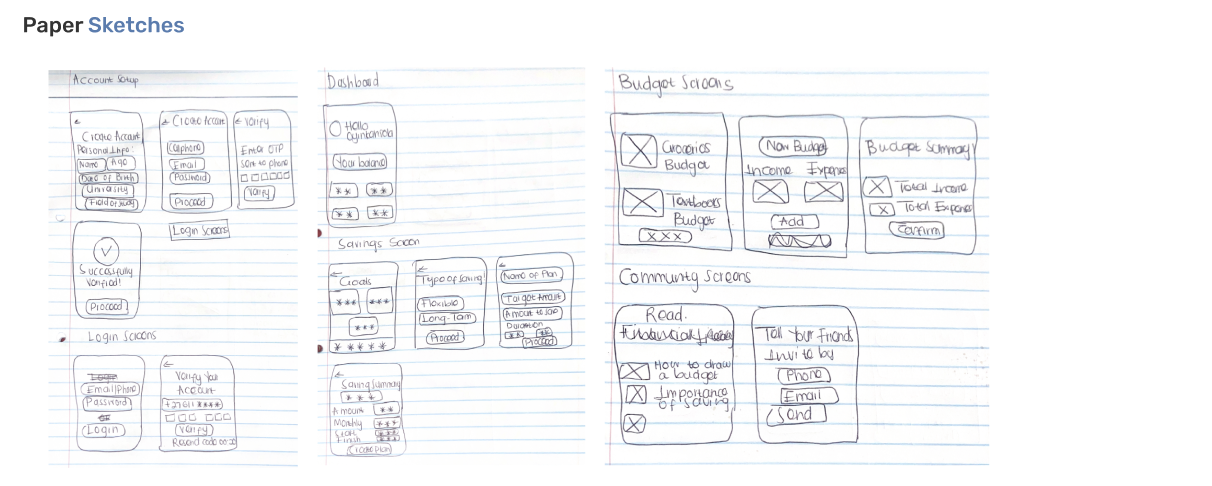 Paper Sketches
Account Setup
Create Account
Personal Info:
Name Age
Date of Birth
University
Field of study
Create Account
Cellphone
Email
Password
Proceed
Verify
Enter OTP
sent to phone
Verify
Successfully
Verified!
Proceed
Login Screens
Login Screens
Email/Phone
Password
Login
Verify Your
Account
+27611****
Verify
Resend code 00:20
Dashboard
Hello
Your balance
** **
** **
Savings Screen
Goals
*** ***
***
*****
Type of Saving
Flexible
Long-Term
Proceed
Name of Plan
Target Amount
Amount to
Duration
** **
Proceed
Saving Summary
***
Amount **
Monthly ***
Start ***
Finish ***
Create Plan
Budget Screens
Groceries
Budget
Textbooks
Budget
XXX
New Budget
Income Expense
Add
Budget Summary
Total Income
Total Expense
Confirm
Community Screens
Read.
How to draw
a budget
Importance
of saving
Tell Your Friends
Invite by
Phone
Email
Send